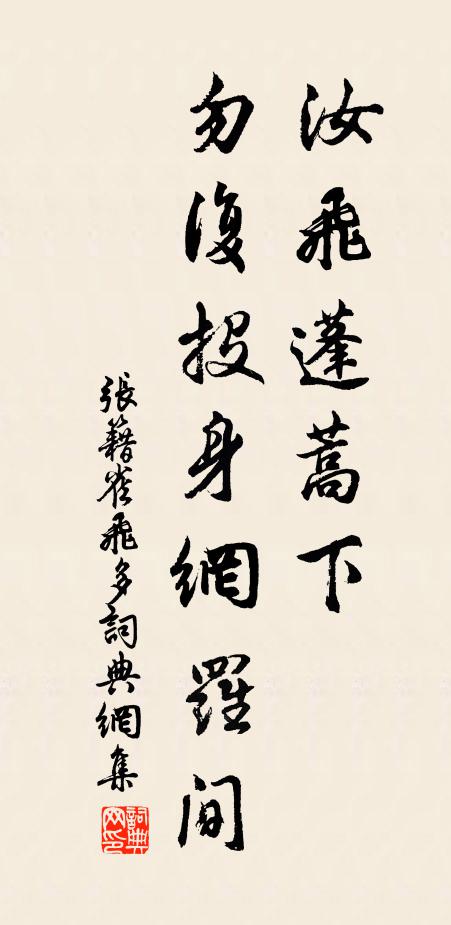 汝飛蓬蒿下
勿復投身網羅間
張籍雀飛多詞典網集
詞典
网印